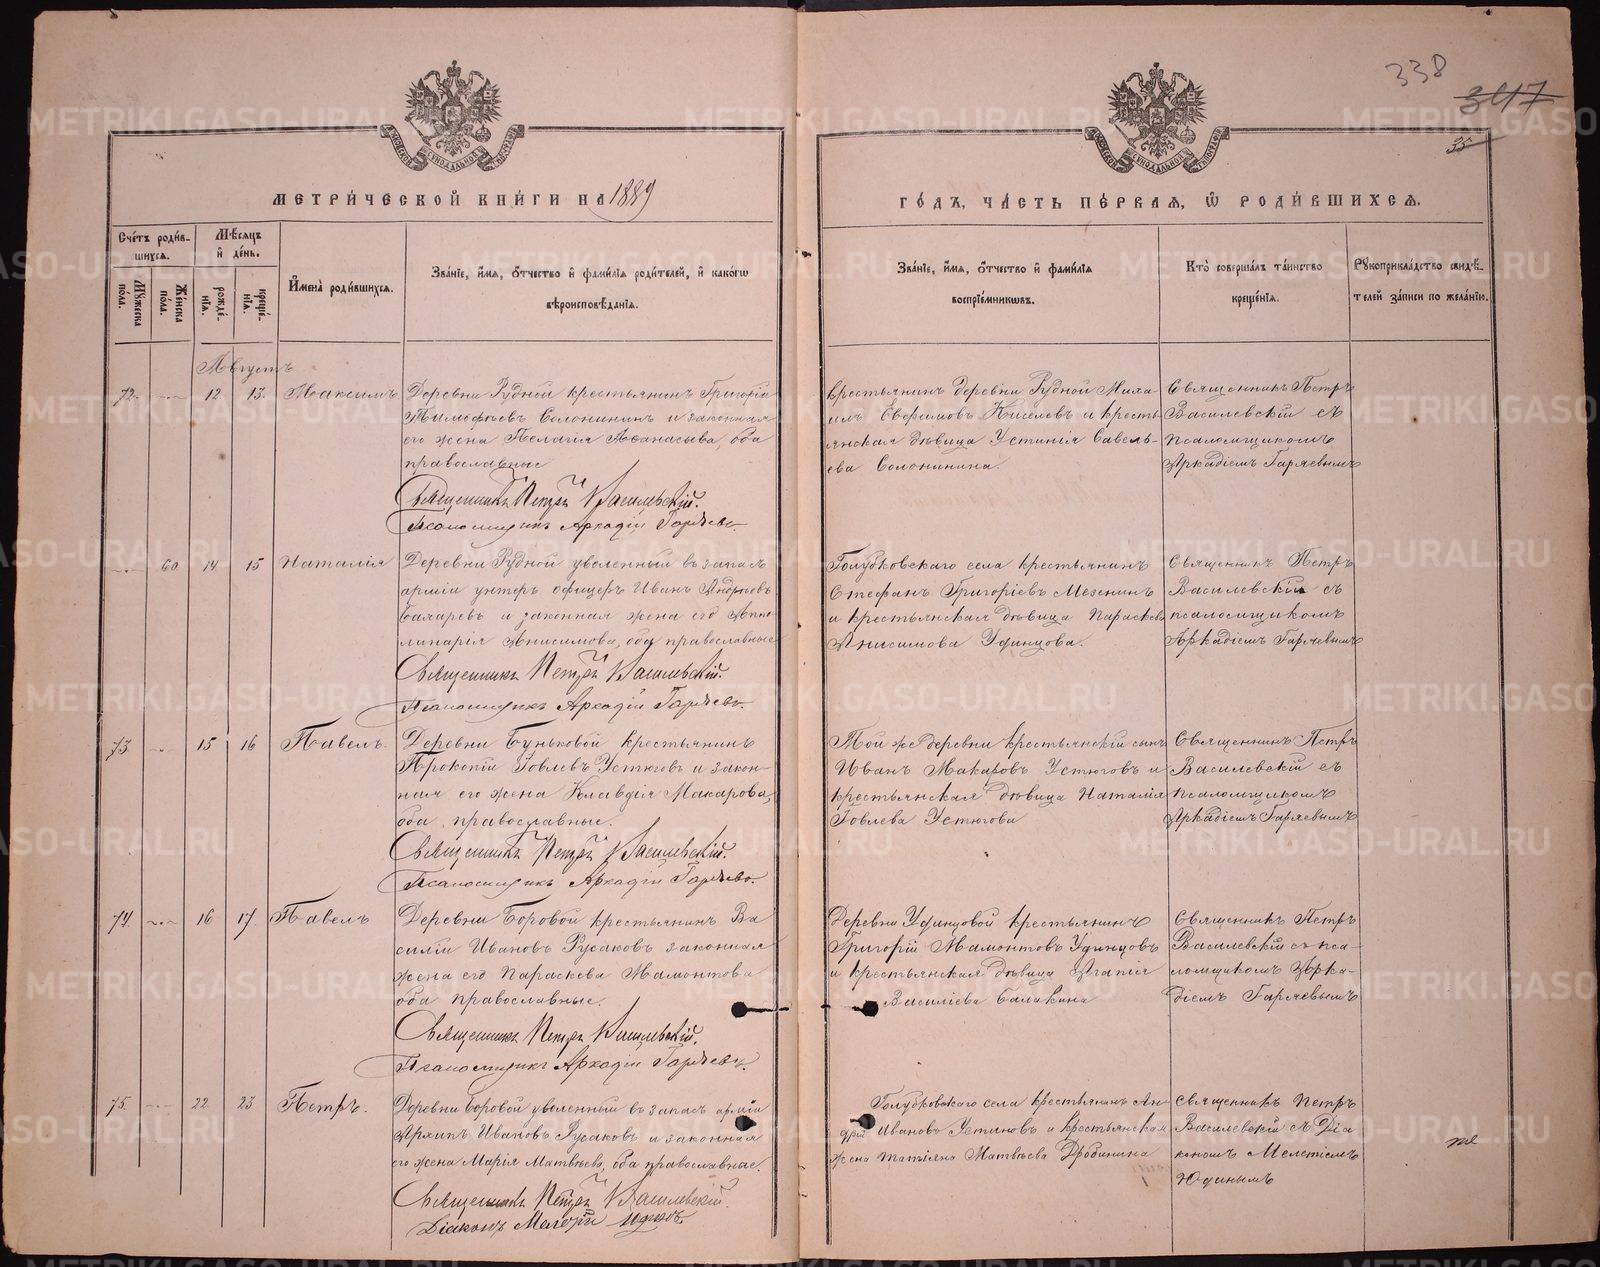 338
347
35
МЕТРИ́ЧЕСКОЙ КНИ́ГИ НА 1889
ГО́ДЪ, ЧА́СТЬ ПЕ́РВАЯ, Ѡ РОДИ́ВШИХСЯ.
Сче́тъ роди́в-
шихся.
Му́жеска
по́ла.
Же́нска
по́ла.
Мѣ́сяцъ
и де́нь.
рожде́-
нія.
креще́-
нія.
И́мена роди́вшихся.
Зва́ніе, и́мя, о́тчество и фами́лія роди́телей, и како́гѡ
вѣроисповѣ́данія.
Зва́ніе, и́мя, о́тчество и фами́лія
воспріе́мникѡвъ.
Кто̀ соверша́лъ та́инство
креще́нія.
Рꙋкоприкла́дство свидѣ́-
телей за́писи по жела́нію.
Августъ
72. 12 13. Максимъ
Деревни Рудной крестьянинъ Григорій
Тимофѣевъ Солонининъ и законная
его жена Пелагія Афанасьева, оба
православные
Священникъ Петръ Василевскій.
Псаломщикъ Аркадій Гаряевъ.
Крестьянинъ деревни Рудной Миха-
илъ Евфимовъ Киселевъ и кресть-
янская дѣвица Устинія Савель-
ева Солонинина.
Священникъ Петръ
Василевскій съ
псаломщикомъ
Аркадіемъ Гаряевымъ
60 14 15 Наталія
Деревни Рудной уволенный въ запасъ
арміи унтеръ офицеръ Иванъ Андреевъ
и законная жена его Аппо-
линарія Анисимова, оба православные
Священникъ Петръ Василевскій.
Псаломщикъ Аркадій Гаряевъ.
Голубковскаго села крестьянинъ
Стефанъ Григоріевъ Мезенинъ
и крестьянская дѣвица Параскева
Анисимова Удинцова.
Священникъ Петръ
Василевскій съ
псаломщикомъ
Аркадіемъ Гаряевымъ
73. 15 16 Павелъ
Деревни Буньковой крестьянинъ
Прокопій Іовлевъ Устюговъ и закон-
ная его жена Клавдія Макарова,
оба православные.
Священникъ Петръ Василевскій.
Псаломщикъ Аркадій Гаряевъ.
Той же деревни крестьянскій сынъ
Иванъ Макаровъ Устюговъ и
крестьянская дѣвица Наталія
Іовлева Устюгова
Священникъ Петръ
Василевскій съ
псаломщикомъ
Аркадіемъ Гаряевымъ
74. 16 17. Павелъ
Деревни Боровой крестьянинъ Ва
силій Ивановъ Русаковъ законная
жена его Параскева Мамонтова
оба православные.
Священникъ Петръ Василевскій.
Псаломщикъ Аркадій Гаряевъ.
Деревни Удинцовой крестьянинъ
Григорій Мамонтовъ Удинцовъ
и крестьянская дѣвица Агапія
Василіева Балакина
Священникъ Петръ
Василевскій съ пса-
ломщикомъ Арка-
діемъ Гаряевымъ
75. 22 23 Петръ.
Деревни Боровой уволенный въ запасъ арміи
Архипъ Ивановъ Русаковъ и законная
его жена Марія Матвѣева, оба православные.
Священникъ Петръ Василевскій.
Діаконъ Мелетій Юдинъ.
Голубковскаго села крестьянинъ Ан-
дрей Ивановъ Устиновъ и крестьянская
жена Татіяна Матвѣева Дробинина
Священникъ Петръ
Василевскій съ Діа
кономъ Мелетіемъ
Юдинымъ
METRIKI.GASO-URAL.RU